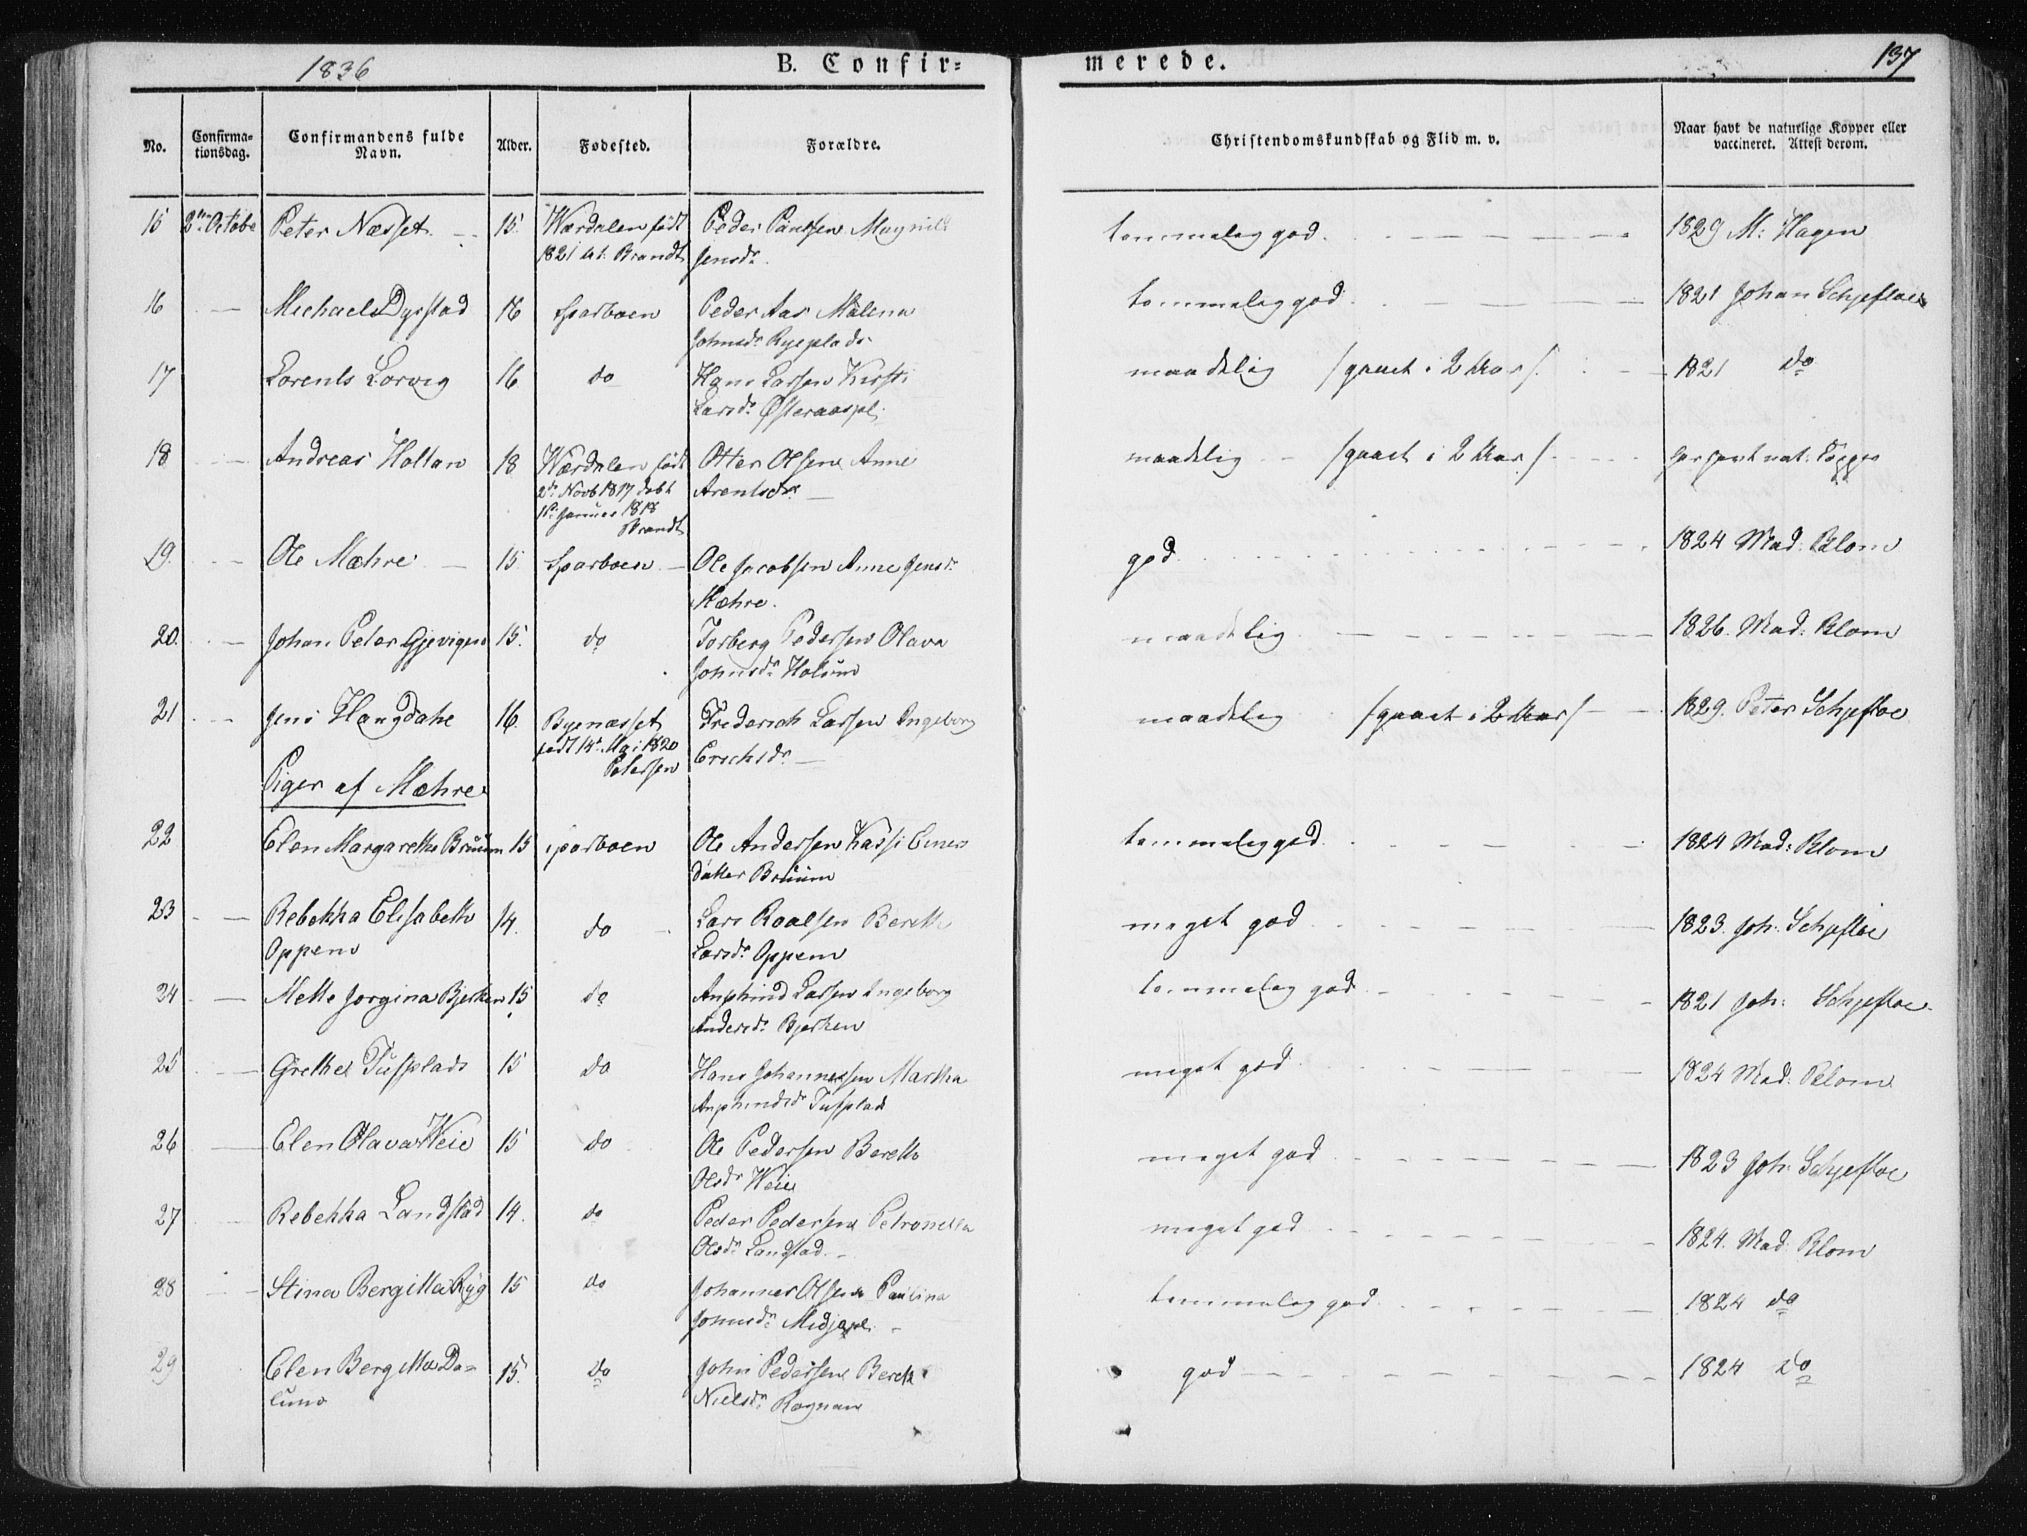 1836 B. Confir= merede. 137
No. Confirma=tionsdag. Confirmandens fulde Navn. Alder. Fødested. Forældre. Christendomskundskab og Flid m. v. Naar havt de naturlige Kopper eller vaccineret. Attest derom.
15 2den Octobe Peter Næsset 15. Værdalen født Peder Paulsen Magnild temmelig god. 1829 M: Hagen
1821 at: Brandt Jensdr.
16 Michael Dysstad 16 Sparboen Peder Aas Malena temmelig god. 1821 Johan Schjefloe
Johnsdr Ryeplads
17 Lorents Lorvig 16 do Hans Larsen Kirsti maadelig /gaaet i 2 Aar/ 1821 do
Larsdr Østeraaspl:
18 Andreas Hollan 18 Værdalen født Otter Olsen Anne maadelig /gaaet i 2 Aar/ har havt nat: Kopper
2de Novb 1817 døbt Arentsdr
1ste Januar 1818
Brandt
19. Ole Mæhre 15 Sparboen Ole Jacobsen Anne Jensdr god 1824 Mad: Blom
Mæhre.
20. Johan Peter Gjevigen 15. do Torberg Pedersen Olava maadelig 1826. Mad: Blom
Johnsdr Holum
21 Jens Haugdahl 16. Byenæsset Frederich Larsen Ingeborg maadelig /gaaet i 2 Aar/ 1829. Peter Schjefloe
født 14de Mai 1820 Erichsdr
Petersen
Piger af Mæhre
22 Elen Margarethe Bruum 15 sparboen Ole Andersen Kassi Einers temmelig god 1824 Mad: Blom
datter Bruum
23 Rebekka Elisabeth 14. do Lars Roalsen Bereth meget god 1823. Joh: Schjefloe
Oppem Larsdr Oppem
24 Mette Jorgina Bjerken 15 do Anphind Larsen Ingeborg temmelig god 1821 Joh: Schjefloe
Andersdr Bjerken
25 Grethe Tufplads 15 do Hans Johannessen Martha meget god 1824 Mad: Blom
Anphindsdr Tufplads
26 Elen Olava Weie 15 do Ole Pedersen Bereth meget god 1823 Joh: Schjefloe
Olsdr Weie
27 Rebekka Landstad 14. do Peder Pedersen Petronella meget god 1824. Mad: Blom
Olsdr Landstad
28 Stina Bergitta Ryg 15 do Johannes Olsen Paulina temmelig god 1824 do
Johnsdr Midjepl:
29 Elen Bergitta Da= 15. do John Pedersen Bereth god 1824 do
luno Nielsdr Rognan